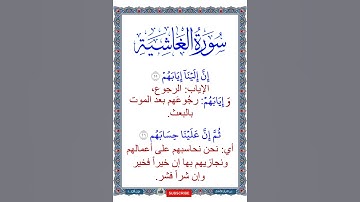 سورة الغاشية
إِنَّ إِلَيْنَا إِيَابَهُمْ ٢٥
الإياب: الرجوع،
وَ إِيَابَهُمْ: رجُوعَهم بعد الموت
بالبعث.
ثُمَّ إِنَّ عَلَيْنَا حِسَابَهُم ٢٦
أي: نحن نحاسبهم على أعمالهم
ونجازيهم بها إن خيراً فخير
وإن شراً فشر.
SUBSCRIBE